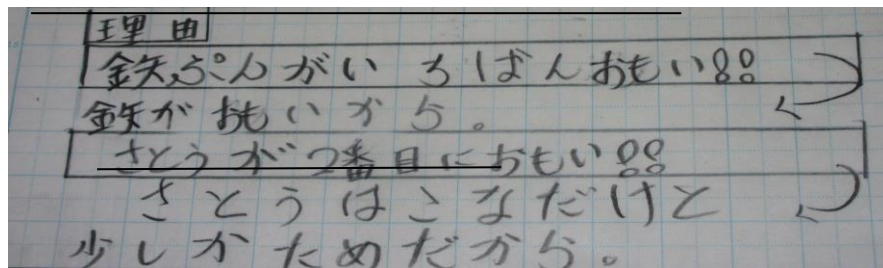 理由
鉄ぷんがいちばんおもい!!
鉄がおもいから。
さとうが2番目におもい!!
さとうはこなだけど
少しかためだから。